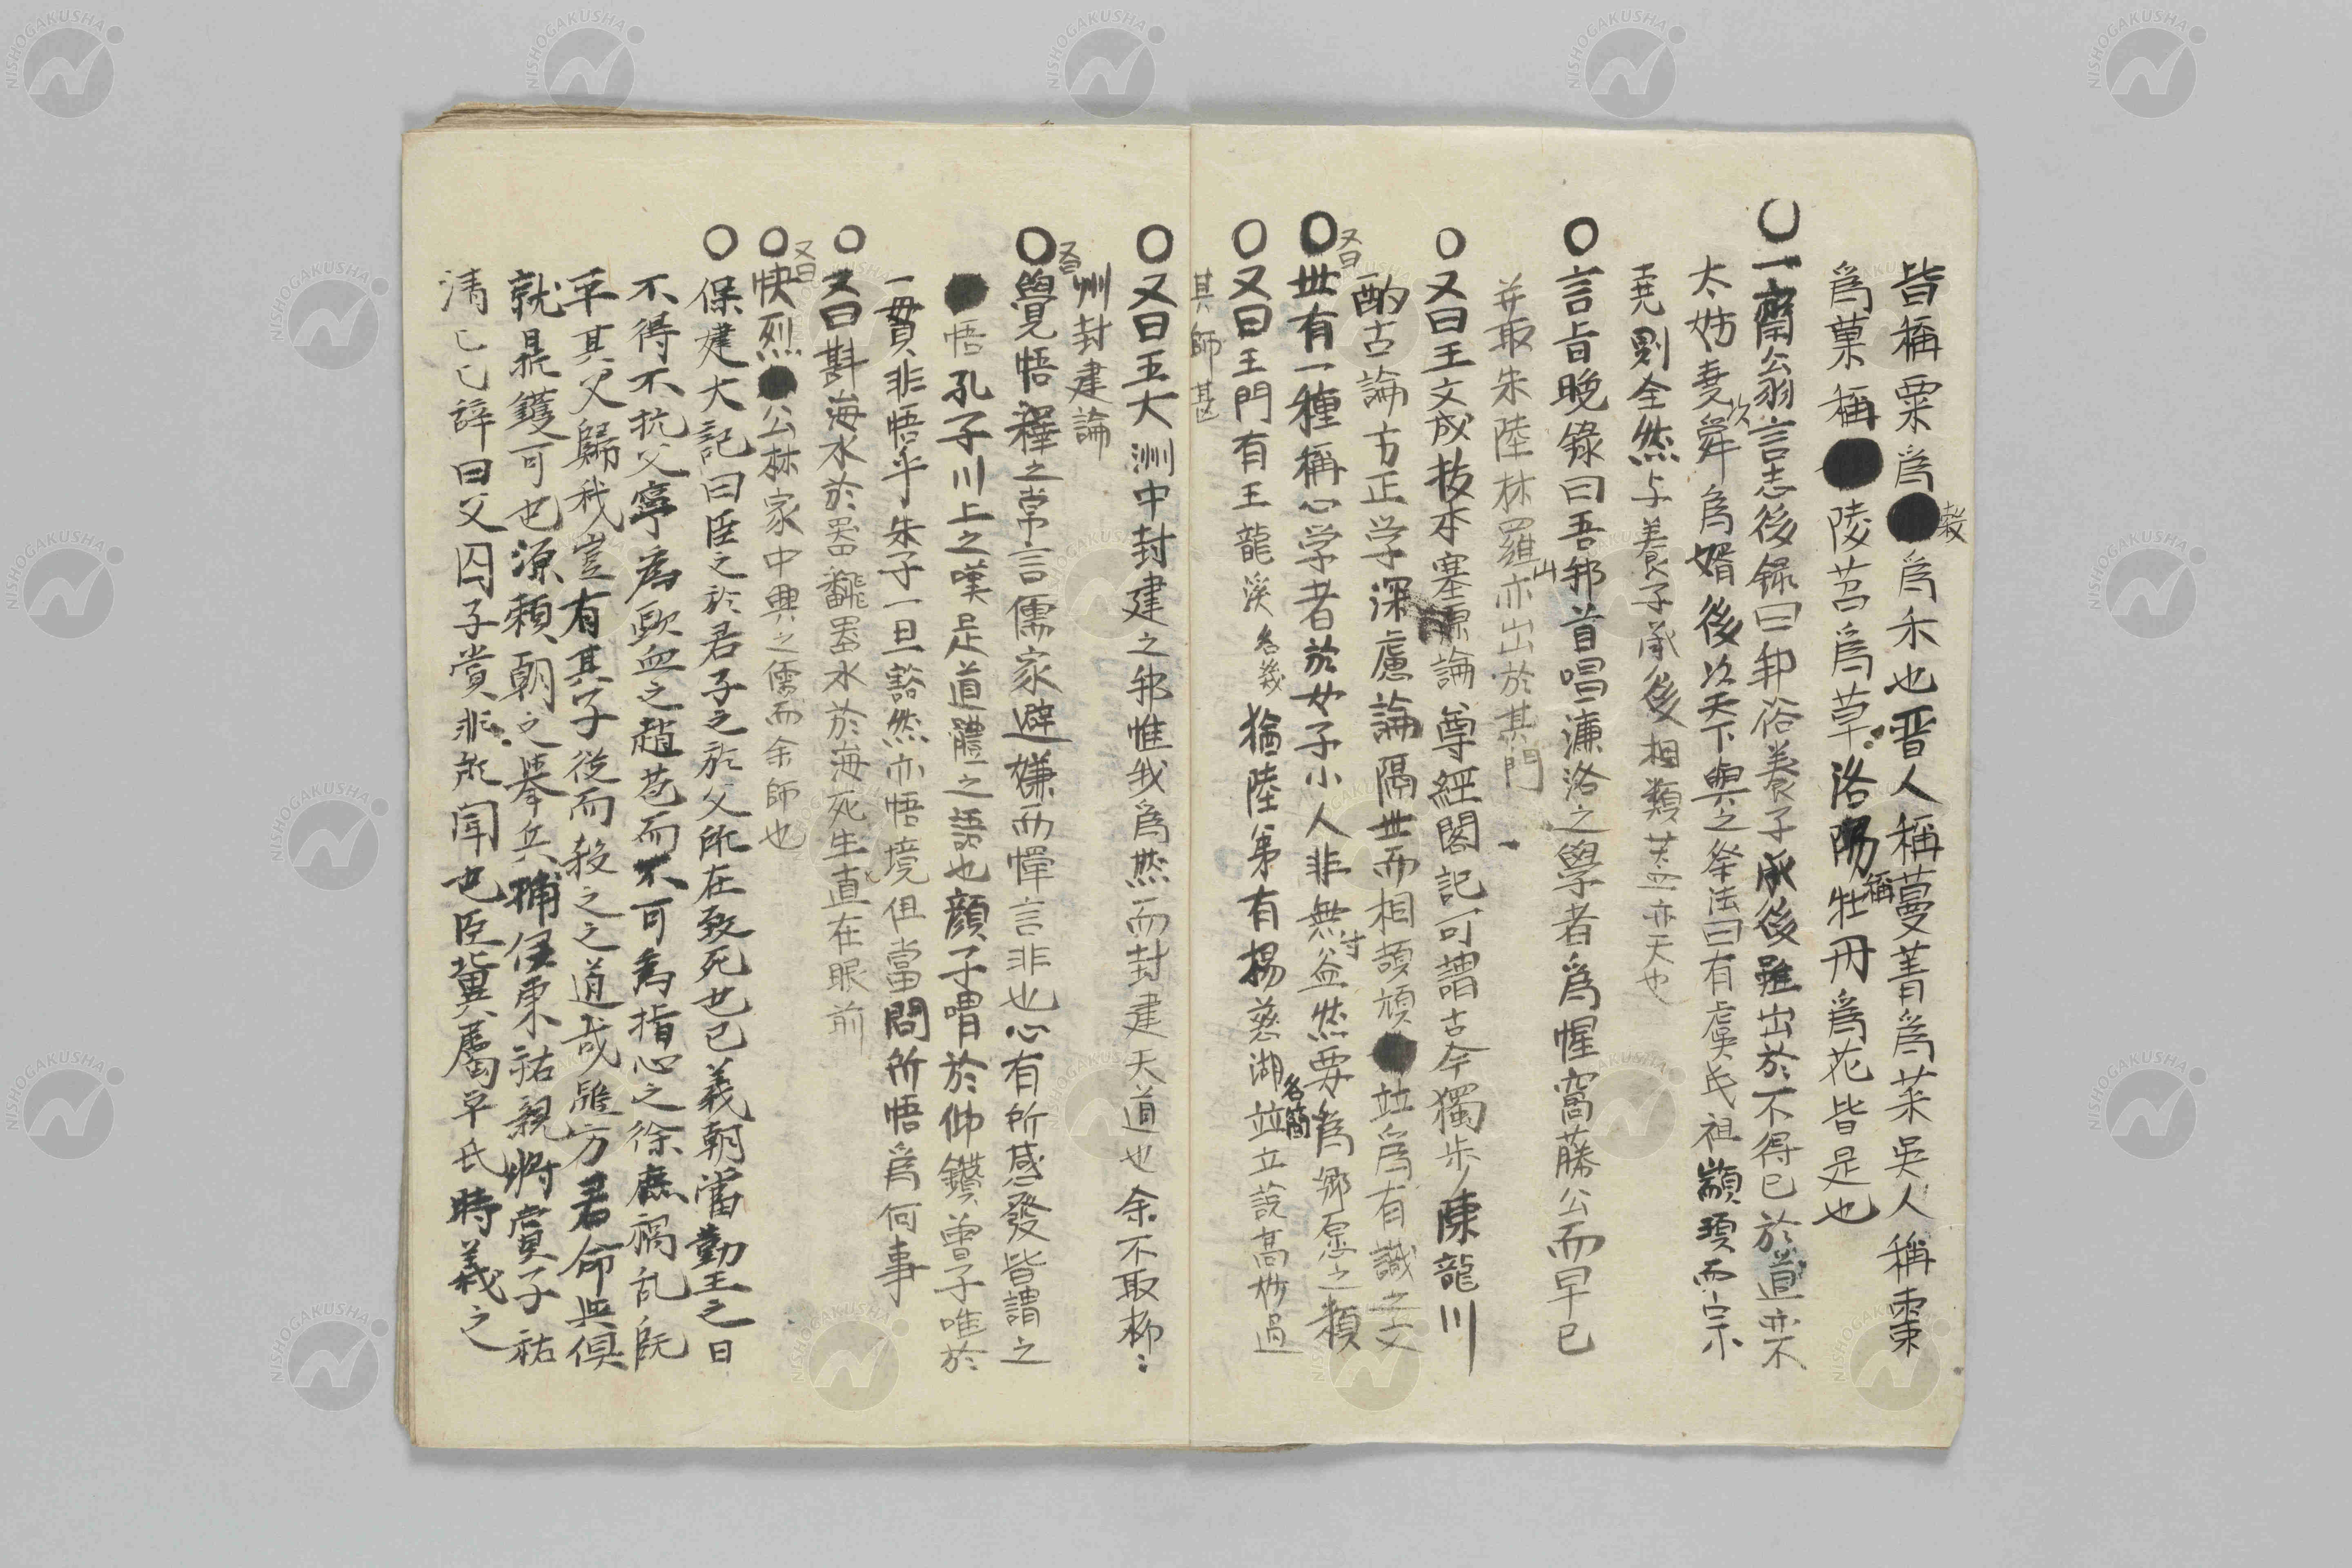 皆稱粟爲●穀爲禾也晋人稱蔓菁爲菜吳人稱棗
爲菓稱●陵苕爲草洛陽稱牡丹爲花皆是也
○一齋翁言志後録曰邦俗養子承後雖出於不得已於道亦
太妨堯以舜爲婿後以天下與之祭法曰有虞氏祖顓頊而宗
堯則全然与養子承後相類益亦天也
○言旨晩錄曰吾邦首唱濂洛之學者爲惺窩藤公而早已
并取朱陸林羅山亦出於其門
○又曰王文成抜本塞源論尊經閣記可謂古今獨歩陳龍川
酌古論方正学深慮論隔世而相頡頏●竝爲有識之文
○又曰世有一種稱心学者於女子小人非無寸益然要爲鄉愿之類
○又曰王門有王龍溪名畿猶陸弟有楊慈湖名簡竝立説高妙過
其師甚
○又曰五大洲中封建之邦惟我爲然而封建天道也余不取柳
州封建論
○又曰覺悟釋之常言儒家避嫌而憚言非也心有所感發皆謂之
●悟孔子川上之嘆是道體之語也顔子喟於仰鑚曽子唯於
一貫非悟乎朱子一旦豁然亦悟境但當問所悟爲何事
○又曰斟海水於器翻器水於海死生直在眼前
○又曰快烈●公林家中興之儒而余師也
○保建大記曰臣之於君子之於父所在致死也已義朝當勤王之日
不得不抗父寧爲歐血之趙苞而不可爲指心之徐庶禍乱既
平其父歸我豈有其子從而殺之之道哉雖方君命與俱
就鼎鑊可也源頼朝之擧兵捕侯東祐親將賞子祐
清乙乙辞曰父囚子賞非所聞也臣冀屬平氏時義之